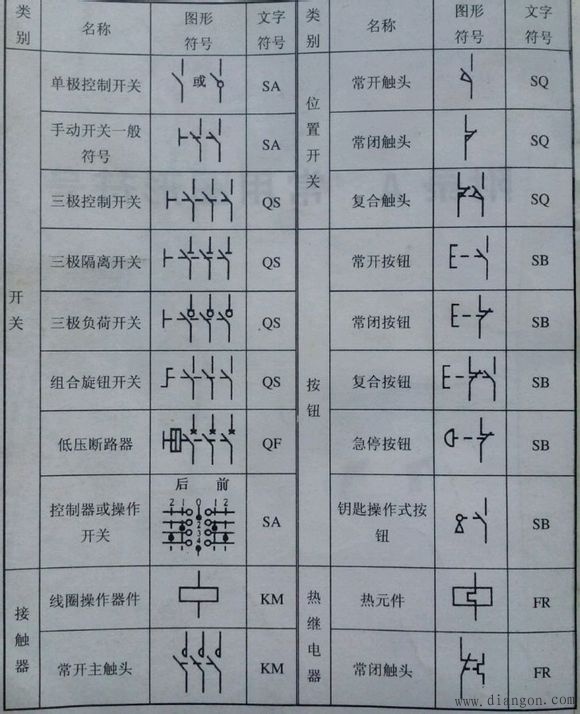 类别 名称 图形符号 文字符号 类别 名称 图形符号 文字符号
开关 单极控制开关 或 SA 位置开关 常开触头 SQ
手动开关一般符号 SA 常闭触头 SQ
三极控制开关 QS 复合触头 SQ
三极隔离开关 QS 按钮 常开按钮 SB
三极负荷开关 QS 常闭按钮 SB
组合旋钮开关 QS 复合按钮 SB
低压断路器 QF 急停按钮 SB
控制器或操作开关 后 前 2 1 0 1 2 1 2 3 4 SA 钥匙操作式按钮 SB
接触器 线圈操作器件 KM 热继电器 热元件 FR
常开主触头 KM 常闭触头 FR
www.diangon.com